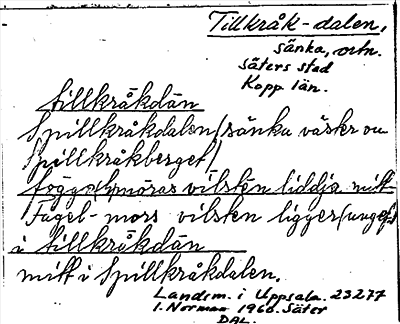 Tillkråk-dalen,
sänka, ortn.
Säters stad
Kopp län.
tillkråkdän
Spillkråkdalen (sänka väster om
Spillkråkberget)
vilsten liddja mitt
Fågel-mors vilsten ligger (ungef.)
i tillkråkdän
mitt i Spillkråkdalen.
Landsm. i Uppsala. 23277
I. Norman 1960. Säter
DAL.